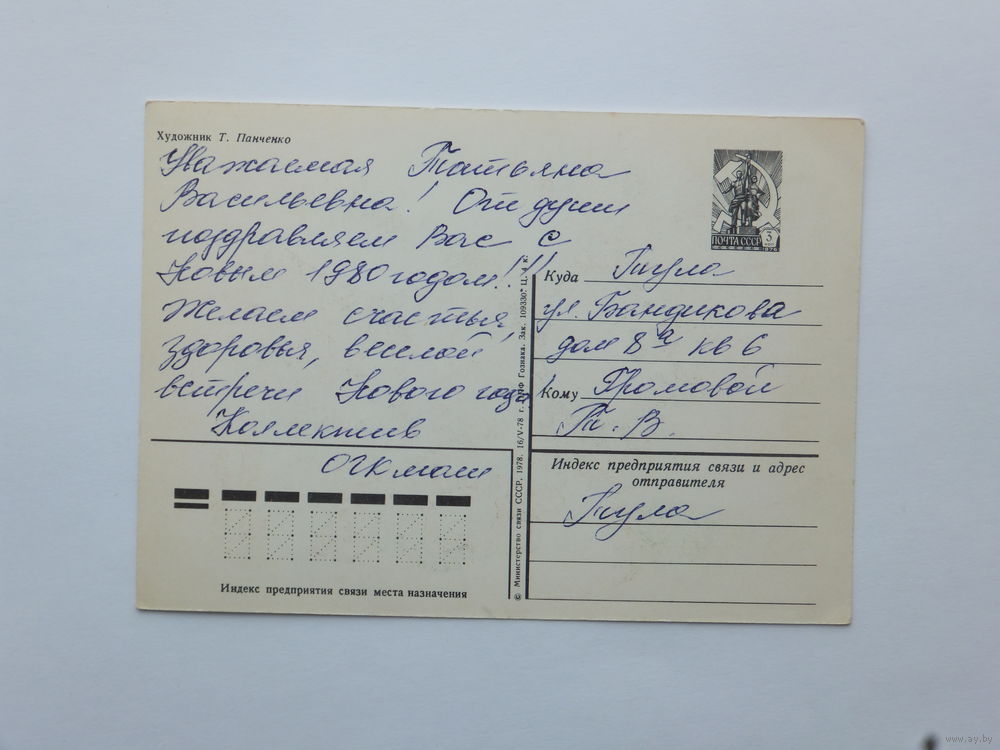 Художник Т. Панченко
Уважаемая Татьяна
Васильевна! От души
поздравляем Вас с
Новым 1980 годом!!!
Желаем счастья,
здоровья, веселой
встречи Нового года
Коллектив
ОГКмаш
ПОЧТА СССР 3
Куда Тула
ул. Бандикова
дом 8а кв 6
Кому Громовой
Т. В.
Индекс предприятия связи и адрес
отправителя
Тула
Индекс предприятия связи места назначения
© Министерство связи СССР. 1978. 16/V-78 г. Гознака. Зак. 109330. Ц. 4 к.
www.ay.by